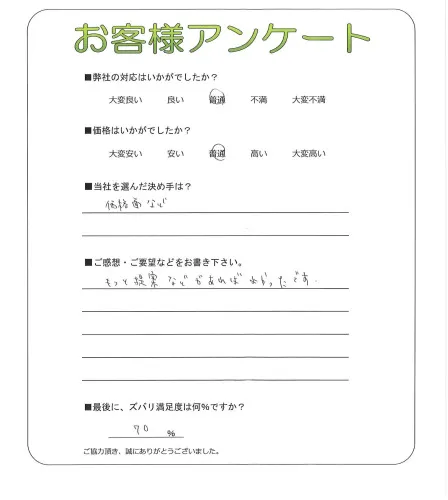 お客様アンケート
■弊社の対応はいかがでしたか？
大変良い 良い 普通 不満 大変不満
■価格はいかがでしたか？
大変安い 安い 普通 高い 大変高い
■当社を選んだ決め手は？
価格面など
■ご感想・ご要望などをお書き下さい。
もっと提案などがあればよかったです.
■最後に、ズバリ満足度は何%ですか？
70 %
ご協力頂き、誠にありがとうございました。